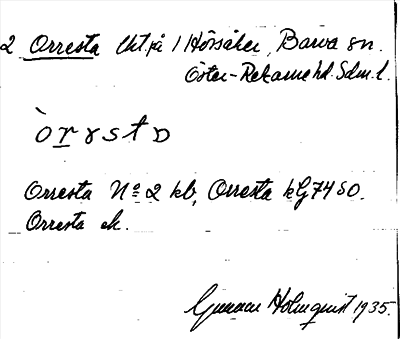 2 Orresta lht. på 1 Hörsåker, Barva sn.
Öster-Rekarne hd. Sdm. l.
òrɤstɒ
Orresta No 2 kb, Orresta kG 74 SO.
Orresta ek.
Gunnar Holmquist 1935.